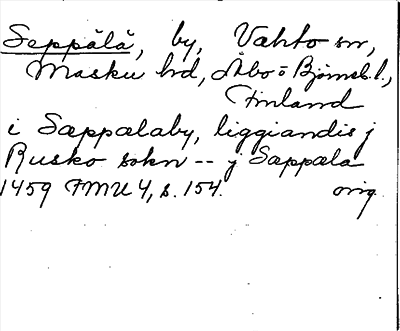 Seppälä, by, Vahto sn,
Masku hd, Åbo o Björneb. l.,
Finland
i Sappalaby, liggiandis j
Rusko sokn -- j Sappala
1459 FMU 4, s. 154. orig.